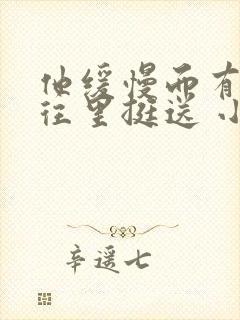 他缓慢而有
往里挺送 小
辛遥七